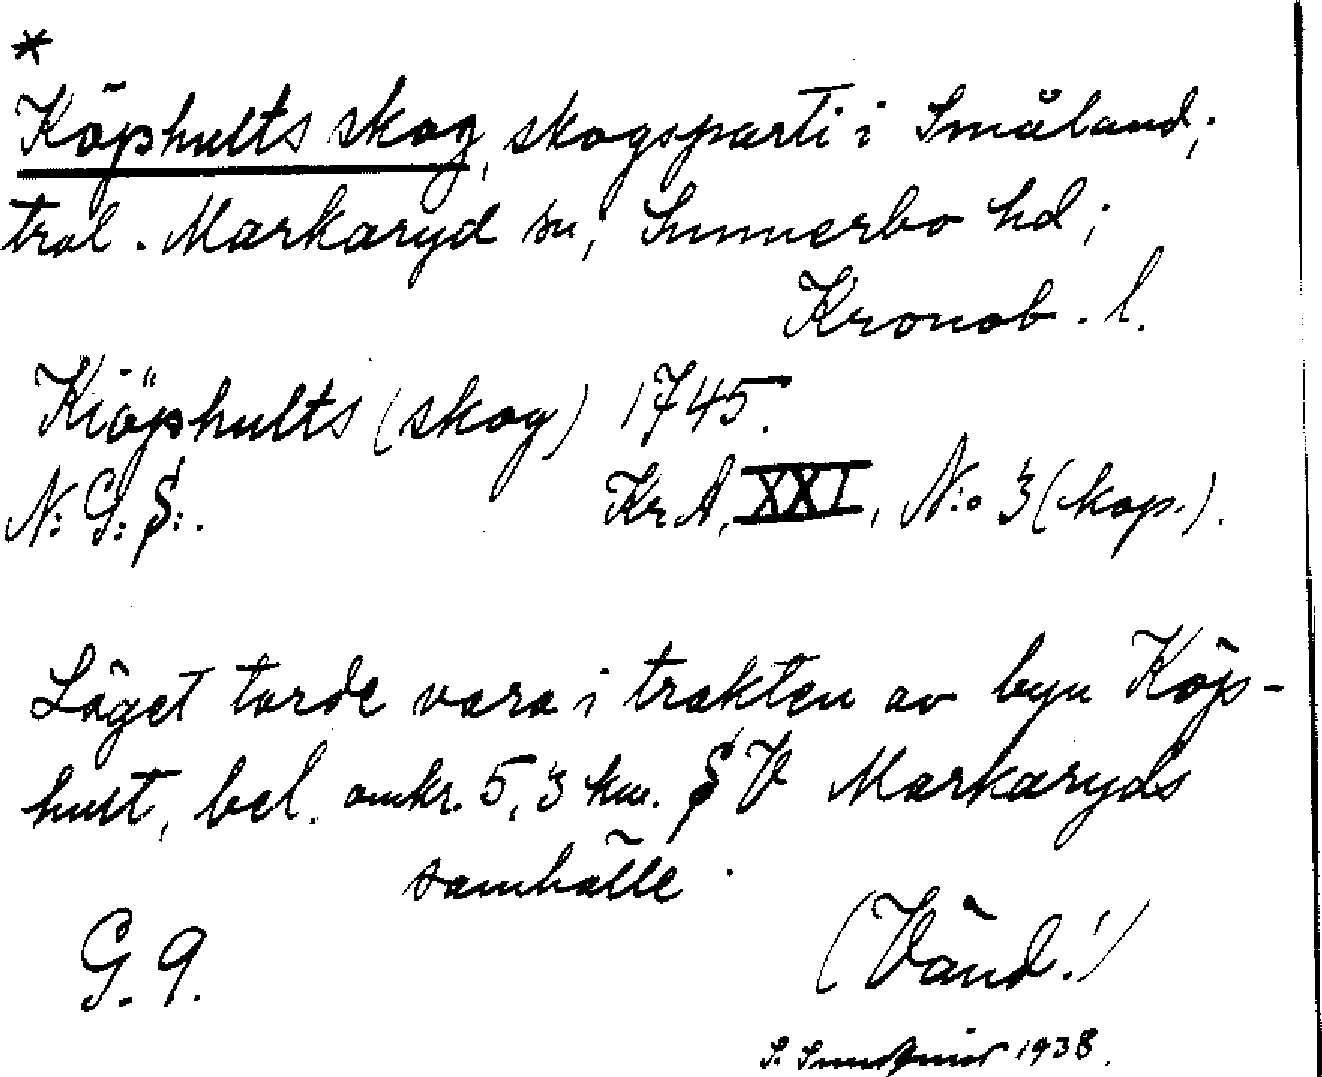 *
Köphults skog, skogsparti i Småland;
trol. Markaryd sn, Sunnerbo hd;
Kronob. l.
Kiöphults (skog) 1745.
N: G: S:. Kr A, XXI, N:o 3 (kop.).
Läget torde vara i trakten av byn Köp-
hult, bel. omkr. 5,3 km. SV Markaryds
samhälle.
G. 9. (Vänd!)
S. 1938.